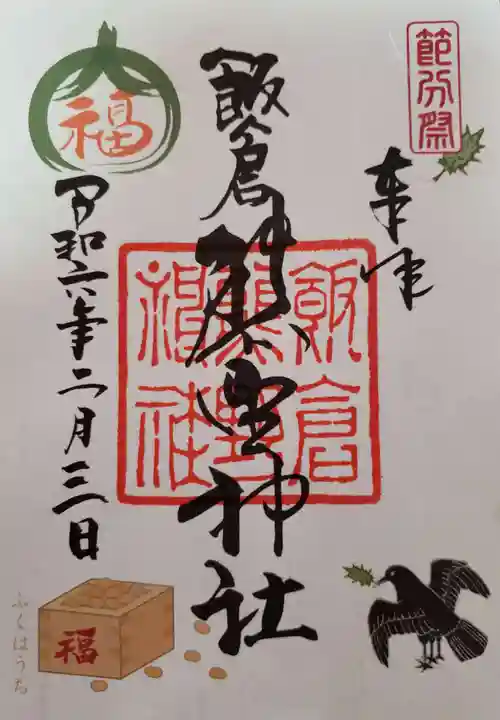 節分祭
奉拝
飯倉熊野神社
飯倉
熊野
神社
福
令和六年二月三日
福
ふくはうち